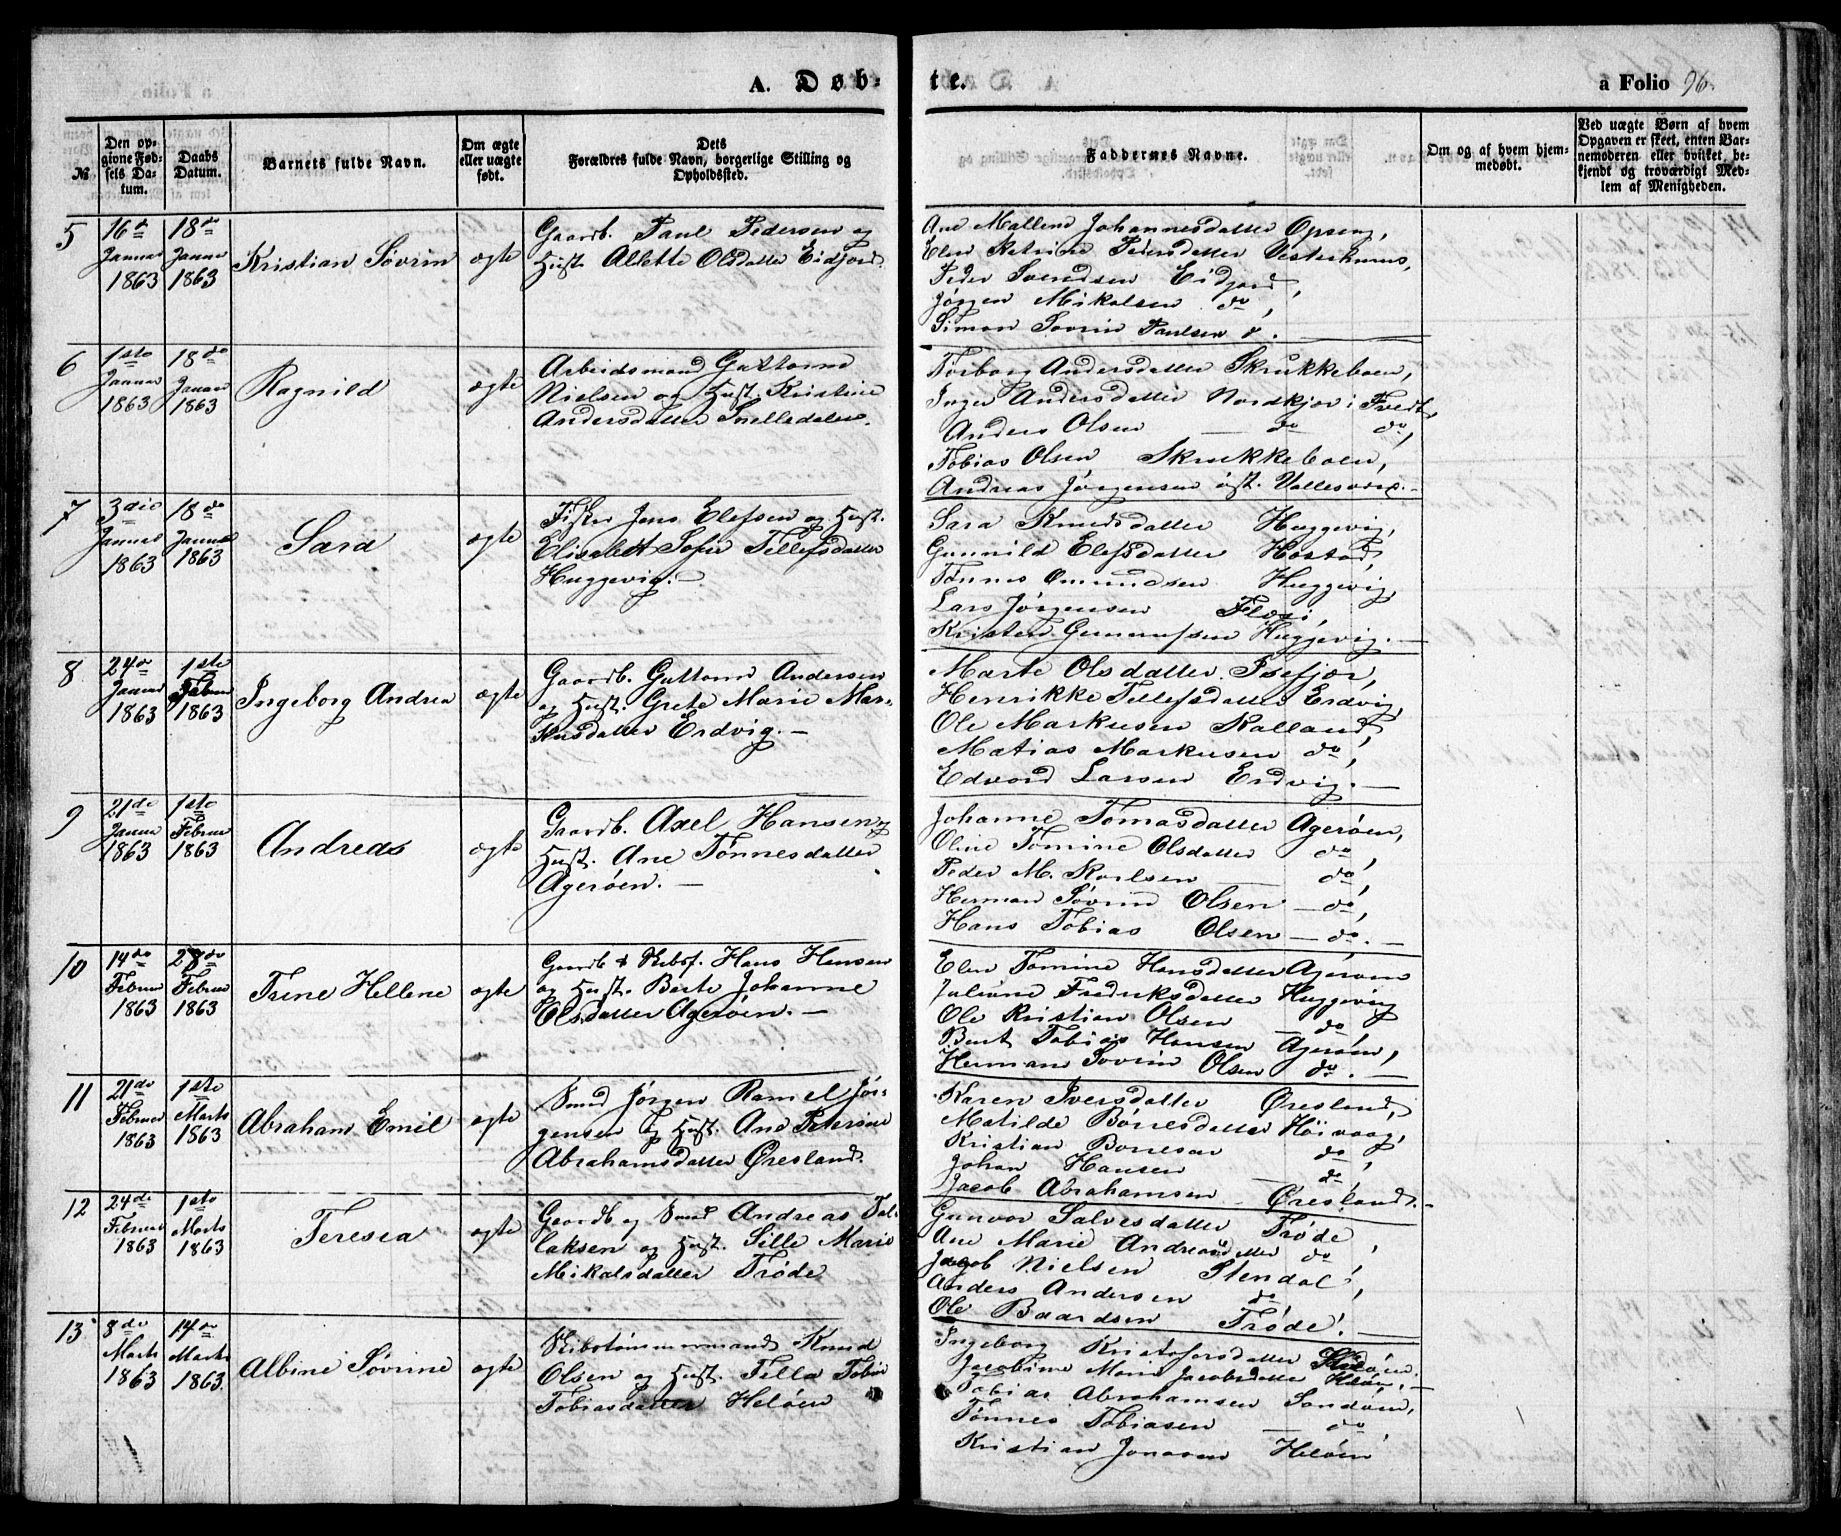 A. Døb-
te.
a Folio 96.
№
Den op-
givne Fød-
sels Da-
tum.
Daabs
Datum.
Barnets fulde Navn.
Om ægte
eller uægte
født.
Dets
Forældres fulde Navn, borgerlige Stilling og
Opholdssted.
Faddernes Navne.
Om og af hvem hjem-
medøbt.
Ved uægte Børn af hvem
Opgaven er skeet, enten Bar-
nemoderen eller hvilket be-
kjendt og troværdigt Med-
lem af Menigheden.
5
16de
Januar
1863
18de
Januar
1863
Kristian Søvrin
ægte
Gaardb. Paul Pedersen og
Hust. Alette Olsdatter Eidjord.
Ane Mallene Johannesdatter Opsøng,
Elen Katrine Pedersdatter Vesterhuus,
Peder Svendsen Eidjord,
Jørgen Mikalsen do,
Simon Søvrin Paulsen d.
6
1ste
Januar
1863
18de
Januar
1863
Ragnild
ægte
Arbeidsmand Guttorm
Nielsen og Hust. Kristine
Andersdatter Snelledalen.
Torborg Andersdatter Skrukkeboen,
Inger Andersdatter Nordkjær i Tvedt,
Anders Olsen — do do,
Tobias Olsen Skrukkeboen,
Andreas Jørgensen øst. Vallesværd.—
7
3die
Januar
1863
18de
Januar
1863
Sara
ægte
Fisker Jens Elefsen og Hust.
Elisabet Sofie Tellefsdatter
Huggevig.—
Sara Knudsdatter Huggevig,
Gunnild Elefsdatter Hæstad,
Tønnes Omundsen Huggevig,
Lars Jørgensen
Kristen Gunnufsen Huggevig.—
8
24de
Januar
1863
1ste
Februar
1863
Ingeborg Andrea
ægte
Gaardb. Guttorm Andersen
og Hust. Grete Marie Mar-
kusdatter Erdvig.—
Marte Olsdatter Isefjær,
Henrikke Tellefsdatter Erdvig,
Ole Markusen Kalland,
Matias Markusen do,
Edvard Larsen Erdvig.—
9
21de
Januar
1863
1ste
Februar
1863
Andreas
ægte
Gaardb. Axel Hansen og
Hust. Ane Tønnesdatter
Agerøen.—
Johanne Tomasdatter Agerøen,
Oline Tomine Olsdatter do,
Peder M. Karlsen — do,
Herman Søvrin Olsen — do,
Hans Tobias Olsen — do.—
10
14de
Februar
1863
28de
Februar
1863
Trine Hellene
ægte
Gaardb & Skibsf. Hans Hansen
og Hust. Berte Johanne
Olsdatter Agerøen.—
Elen Tomine Hansdatter Agerøen
Juliane Fredriksdatter Huggevig
Ole Kristian Olsen — do,
Bent Tobias Hansen Agerøen,
Herman Søvrin Olsen do.—
11
21de
Februar
1863
1ste
Marts
1863
Abraham Emil
ægte
Smed Jørgen Ramel Jør-
gensen og Hust. Ane Petersine
Abrahamsdatter Øresland.
Karen Iversdatter Øresland,
Matilde Børresdatter Høivaag,
Kristian Borresen do,
Johan Hansen do,
Jacob Abrahamsen Øresland.—
12
24de
Februar
1863
1ste
Marts
1863
Teresia
ægte
Gaardb og Smed Andreas Tal-
laksen og Hust. Sille Marie
Mikalsdatter Trøde
Gunvor Salvesdatter Trøde,
Ane Marie Andreasdatter do,
Jacob Nielsen Stendal,
Anders Andersen do,
Ole Baardsen Trøde.—
13
8de
Marts
1863
14de
Marts
1863.
Albine Søvrine
ægte
Skibstømmermand Knud
Olsen og Hust. Tella Tobie
Tobiasdatter Heløen
Ingeborg Kristofersdatter
Jacobine Marie Jacobsdatter Heløen,—
Tobias Abrahamsen Sandøen,
Tønnes Tobiasen — do
Kristian Jonasen Heløen